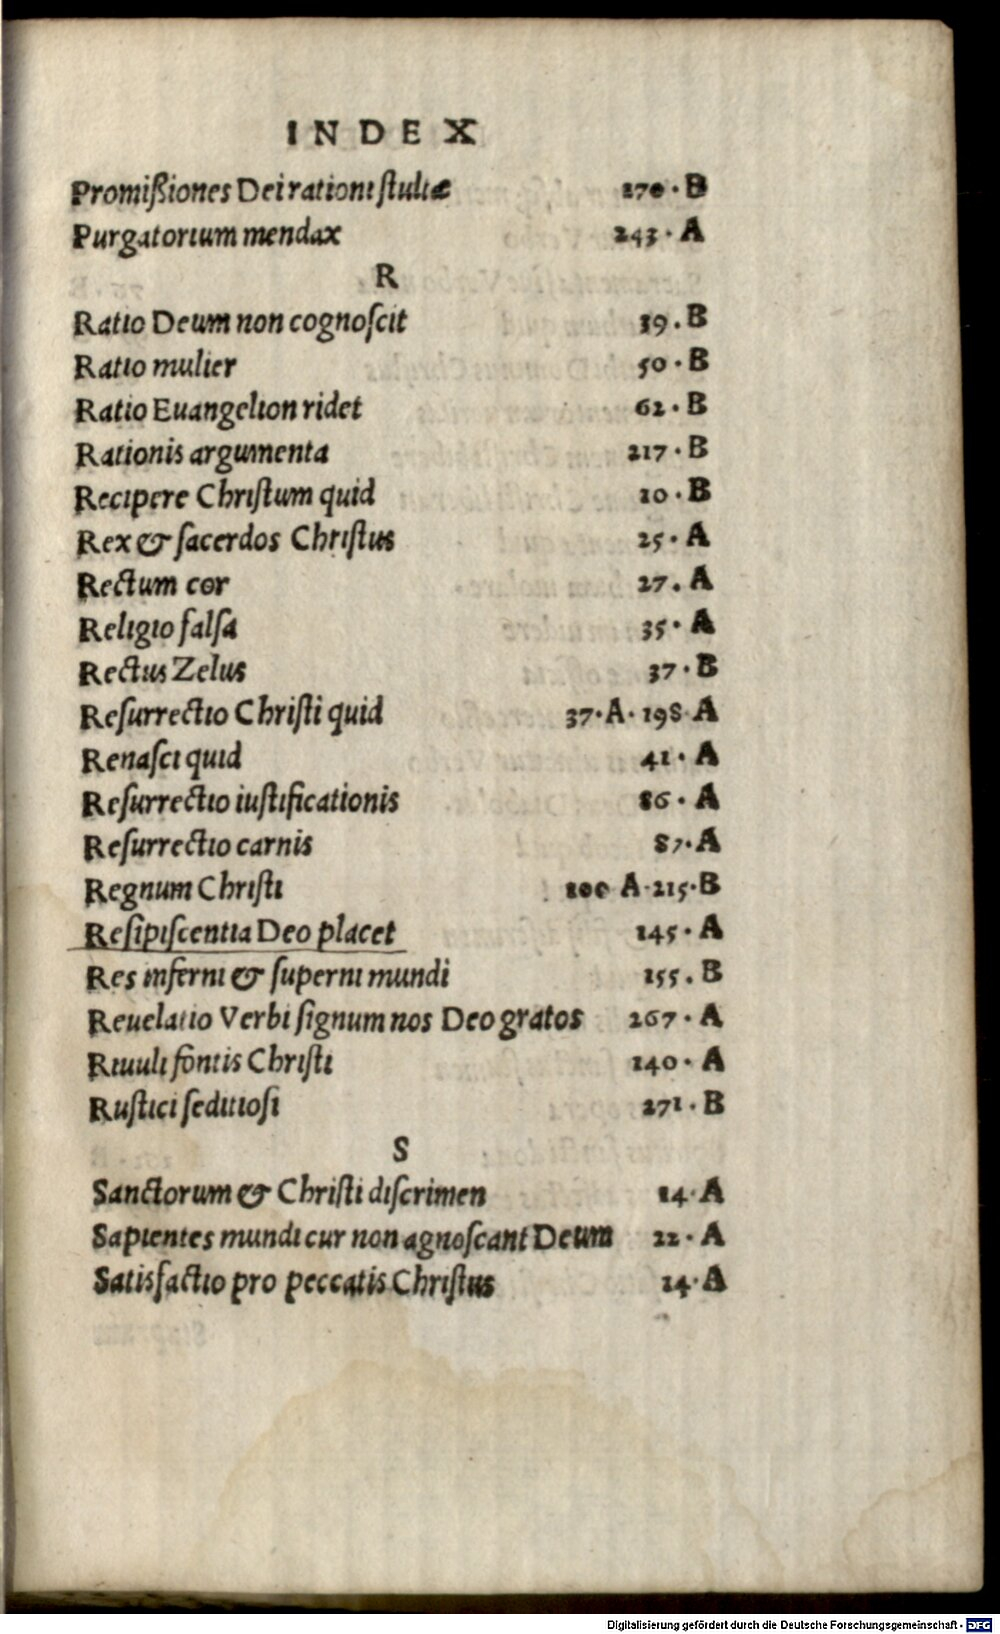 INDEX
Promißiones Dei rationi stultæ 270·B
Purgatorium mendax 243·A
R
Ratio Deum non cognoſcit 19.B
Ratio mulier 50·B
Ratio Euangelion ridet 62·B
Rationis argumenta 217·B
Recipere Chriſtum quid 10·B
Rex & ſacerdos Chriſtus 25·A
Rectum cor 27.A
Religio falſa 35·A
Rectus Zelus 37·B
Reſurrectio Chriſti quid 37·A·198 A
Renaſci quid 41·A
Reſurrectio iuſtificationis 86·A
Reſurrectio carnis 87·A
Regnum Chriſti 100 A·215·B
Reſipiſcentia Deo placet 145·A
Res inferni & ſuperni mundi 155.B
Reuelatio Verbi ſignum nos Deo gratos 267·A
Riuuli fontis Chriſti 140·A
Ruſtici ſeditioſi 271·B
S
Sanctorum & Chriſti diſcrimen 14·A
Sapientes mundi cur non agnoſcant Deum 22·A
Satisfactio pro peccatis Chriſtus 14·A
Digitalisierung gefördert durch die Deutsche Forschungsgemeinschaft - DFG